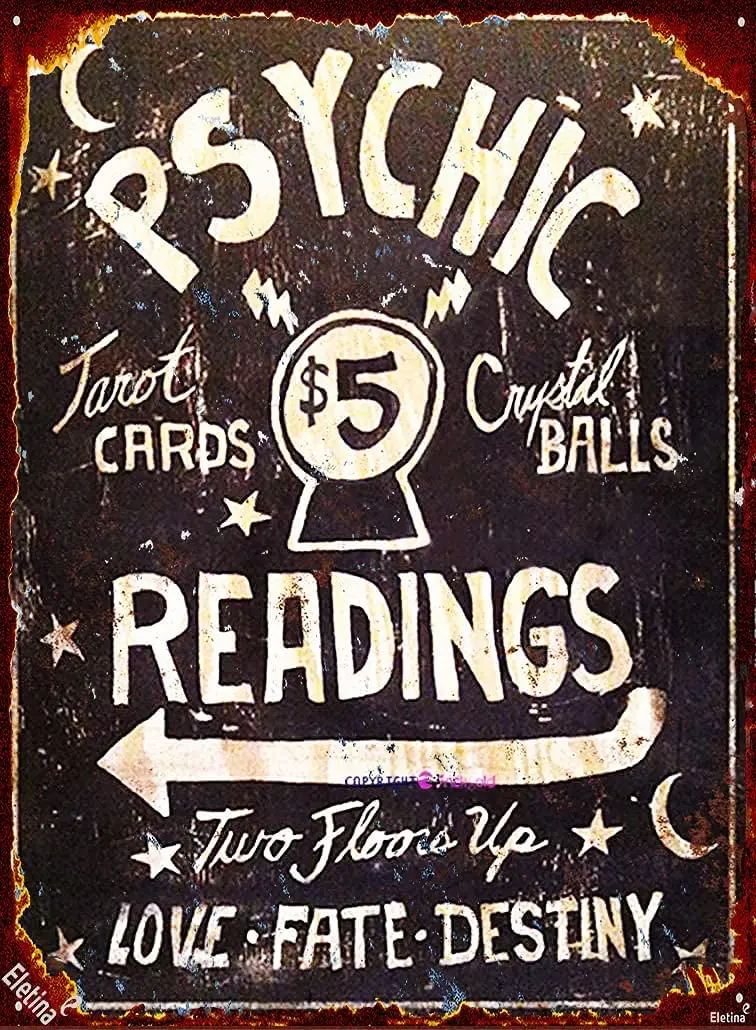 PSYCHIC
Tarot
CARDS
$5
Crystal
BALLS
READINGS
COPYRIGHT
Two Floors Up
LOVE · FATE · DESTINY
Eletina
Eletina